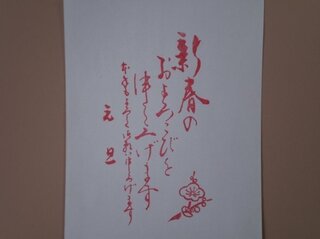 新春の
およろこびを
申し上げます
本年もよろしくお願い申しあげます
元旦